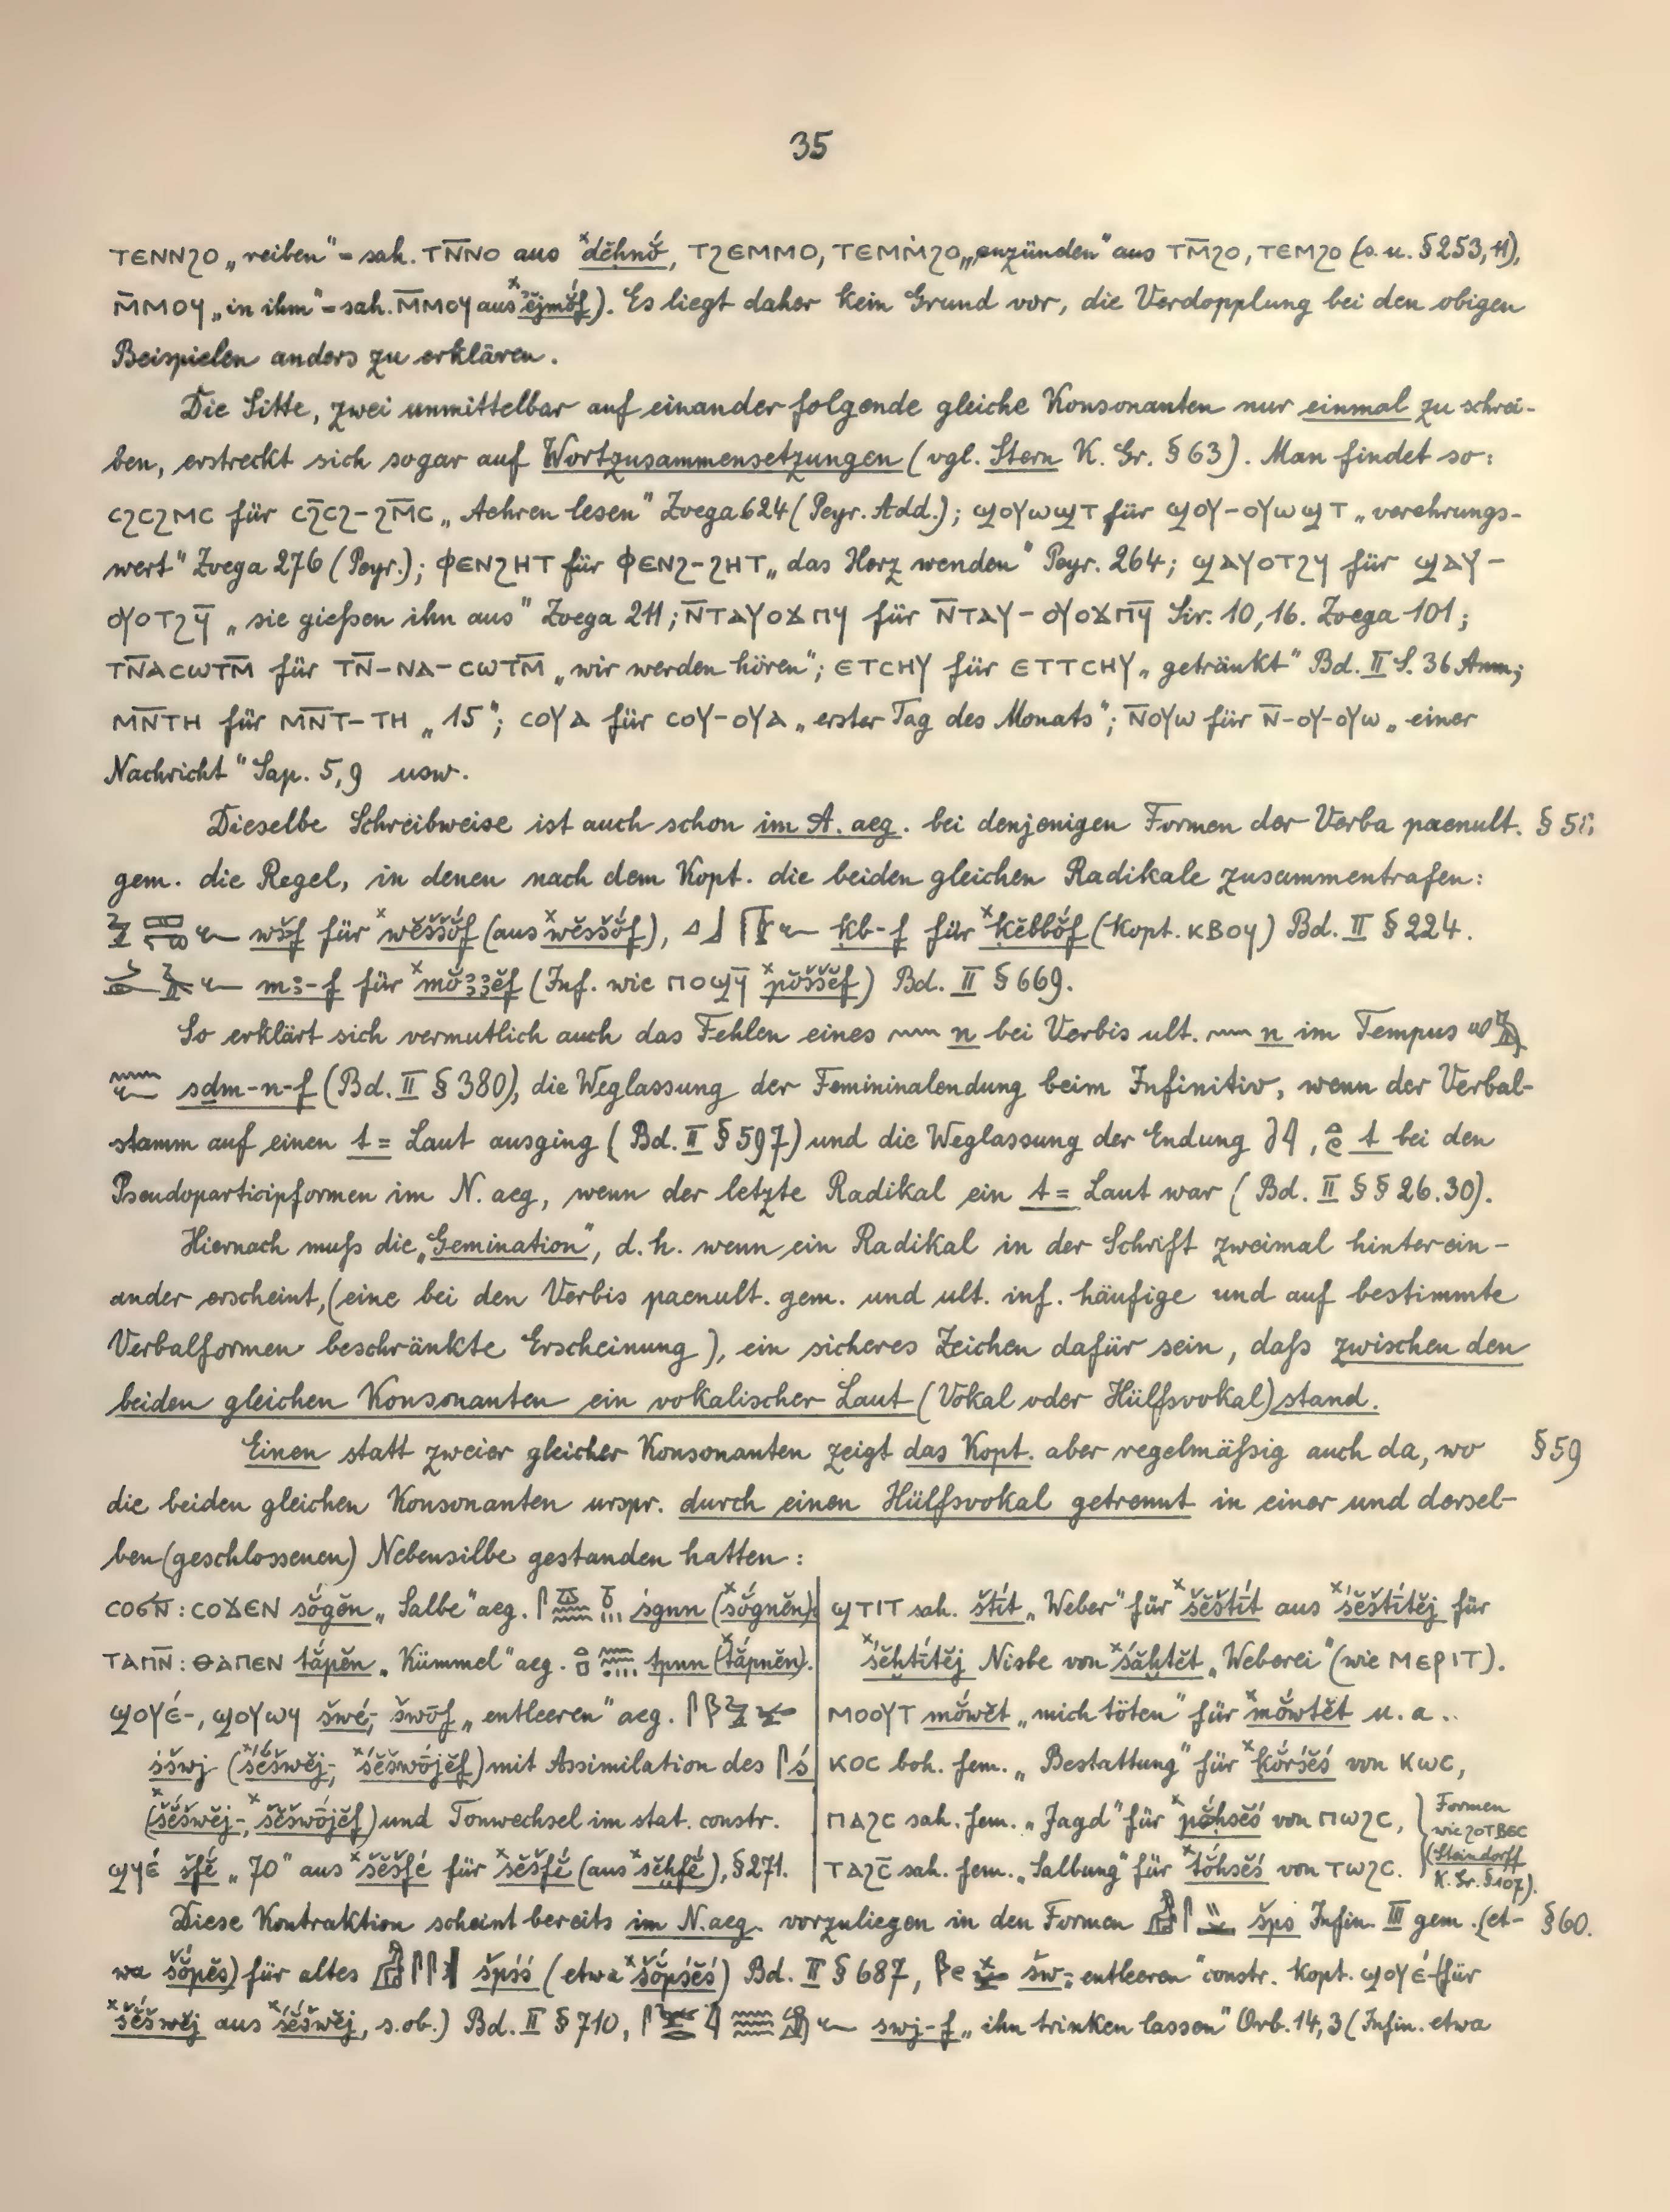 35
ⲧⲉⲛⲛϩⲟ „reiben“ = sah. ⲧⲛ̄ⲛⲟ aus ˣdĕhnŏ́, ⲧϩⲉⲙⲙⲟ, ⲧⲉⲙⲙ̇ϩⲟ „anzünden“ aus ⲧⲙ̄ϩⲟ, ⲧⲉⲙϩⲟ (s. u. § 253, 11),
ⲙ̄ⲙⲟϥ „in ihm“ = sah. ⲙ̄ⲙⲟϥ aus ˣĕjmŏ́f). Es liegt daher kein Grund vor, die Verdopplung bei den obigen
Beispielen anders zu erklären.
Die Sitte, zwei unmittelbar auf einander folgende gleiche Konsonanten nur einmal zu schrei-
ben, erstreckt sich sogar auf Wortzusammensetzungen (vgl. Stern K. Gr. § 63). Man findet so:
ⲥϩⲥϩⲙⲥ für ⲥϩ̄ⲥϩ-ϩⲙ̄ⲥ „Aehren lesen“ Zoega 624 (Peyr. Add.); ϣⲟⲩⲱϣⲧ für ϣⲟⲩ-ⲟⲩⲱϣⲧ „verehrungs-
wert“ Zoega 276 (Peyr.); ⲫⲉⲛϩⲏⲧ für ⲫⲉⲛϩ-ϩⲏⲧ „das Herz wenden“ Peyr. 264; ϣⲁⲩⲟⲧϩϥ für ϣⲁⲩ-
ⲟⲩⲟⲧϩϥ̄ „sie gießen ihn aus“ Zoega 211; ⲛ̄ⲧⲁⲩⲟϫⲡϥ für ⲛ̄ⲧⲁⲩ-ⲟⲩⲟϫⲡϥ̄ Sir. 10,16. Zoega 101;
ⲧⲛ̄ⲁⲥⲱⲧⲙ̄ für ⲧⲛ̄-ⲛⲁ-ⲥⲱⲧⲙ̄ „wir werden hören“; ⲉⲧⲥⲏⲩ für ⲉⲧⲧⲥⲏⲩ „getränkt“ Bd. II S. 36 Anm;
ⲙⲛ̄ⲧⲏ für ⲙⲛ̄ⲧ-ⲧⲏ „15“; ⲥⲟⲩⲁ für ⲥⲟⲩ-ⲟⲩⲁ „erster Tag des Monats“; ⲛ̄ⲟⲩⲱ für ⲛ̄-ⲟⲩ-ⲟⲩⲱ „einer
Nachricht“ Sap. 5,9 usw.
Dieselbe Schreibweise ist auch schon im A. aeg. bei denjenigen Formen der Verba paenult.
gem. die Regel, in denen nach dem Kopt. die beiden gleichen Radikale zusammentrafen:
wš-f für ˣwĕššŏ́f (aus ˣwĕsšŏ́f), ḳb-f für ˣḳĕbbŏ́f (Kopt. ⲕⲃⲟϥ) Bd. II § 224.
mꜣ-f für ˣmŏ́ꜣꜣĕf (Inf. wie ⲡⲟϣϥ̄ ˣpŏ́ššĕf) Bd. II § 669.
So erklärt sich vermutlich auch das Fehlen eines 𓈖 n bei Verbis ult. 𓈖 n im Tempus
sḏm-n-f (Bd. II § 380), die Weglassung der Femininalendung beim Infinitiv, wenn der Verbal-
stamm auf einen t = Laut ausging (Bd. II § 597) und die Weglassung der Endung t bei den
Pseudoparticipformen im N. aeg, wenn der letzte Radikal ein t = Laut war (Bd. II §§ 26.30).
Hiernach muß die „Gemination“, d. h. wenn ein Radikal in der Schrift zweimal hinterein-
ander erscheint, (eine bei den Verbis paenult. gem. und ult. inf. häufige und auf bestimmte
Verbalformen beschränkte Erscheinung), ein sicheres Zeichen dafür sein, daß zwischen den
beiden gleichen Konsonanten ein vokalischer Laut (Vokal oder Hülfsvokal) stand.
Einen statt zweier gleicher Konsonanten zeigt das Kopt. aber regelmäßig auch da, wo § 59
die beiden gleichen Konsonanten urspr. durch einen Hülfsvokal getrennt in einer und dersel-
ben (geschlossenen) Nebensilbe gestanden hatten:
ⲥⲟϭⲛ̄ : ⲥⲟϫⲉⲛ sŏ́gĕn „Salbe“ aeg. śgnn (ˣsŏ́gnĕn).
ⲧⲁⲡⲛ̄ : ⲑⲁⲡⲉⲛ tắpĕn „Kümmel“ aeg. tpnn (ˣtắpnĕn).
ϣⲟⲩⲉ́-, ϣⲟⲩⲱϥ šwĕ́-, šwōf „entleeren“ aeg.
śšwj (ˣśĕ́šwĕj-, ˣśĕšwōjĕf) mit Assimilation des ś
(ˣšĕ́šwĕj-, ˣšĕšwōjĕf) und Tonwechsel im stat. constr.
ϣϥⲉ́ šfĕ́ „70“ aus ˣšĕšfĕ́ für ˣsĕšfĕ́ (aus ˣsĕḫfĕ́), § 271.
ϣⲧⲓⲧ sah. štīt „Weber“ für ˣšĕštīt aus ˣśĕštītĕj für
ˣśĕḫtītĕj Nisbe von ˣśắḫtĕt „Weberei“ (wie ⲙⲉⲣⲓⲧ).
ⲙⲟⲟⲩⲧ mŏ́wĕt „mich töten“ für ˣmŏ́wtĕt u. a.
ⲕⲟⲥ boh. fem. „Bestattung“ für ˣḳŏ́rśĕś von ⲕⲱⲥ,
ⲡⲁϩⲥ sah. fem. „Jagd“ für ˣpŏ́ḥsĕś von ⲡⲱϩⲥ,
ⲧⲁϩⲥ̄ sah. fem. „Salbung“ für ˣtŏ́hsĕś von ⲧⲱϩⲥ.
Formen
wie ϩⲟⲧⲃⲉⲥ
(Steindorff
K. Gr. § 107).
Diese Kontraktion scheint bereits im N. aeg. vorzuliegen in den Formen šps Infin. III gem. (et- § 60.
wa šŏ́pĕs) für altes špśś (etwa ˣšŏ́pśĕś) Bd. II § 687, šw- „entleeren“ constr. kopt. ϣⲟⲩⲉ́- (für
ˣšĕ́šwĕj aus ˣśĕ́šwĕj, s. ob.) Bd. II § 710, swj-f „ihn trinken lassen“ Orb. 14,3 (Infin. etwa